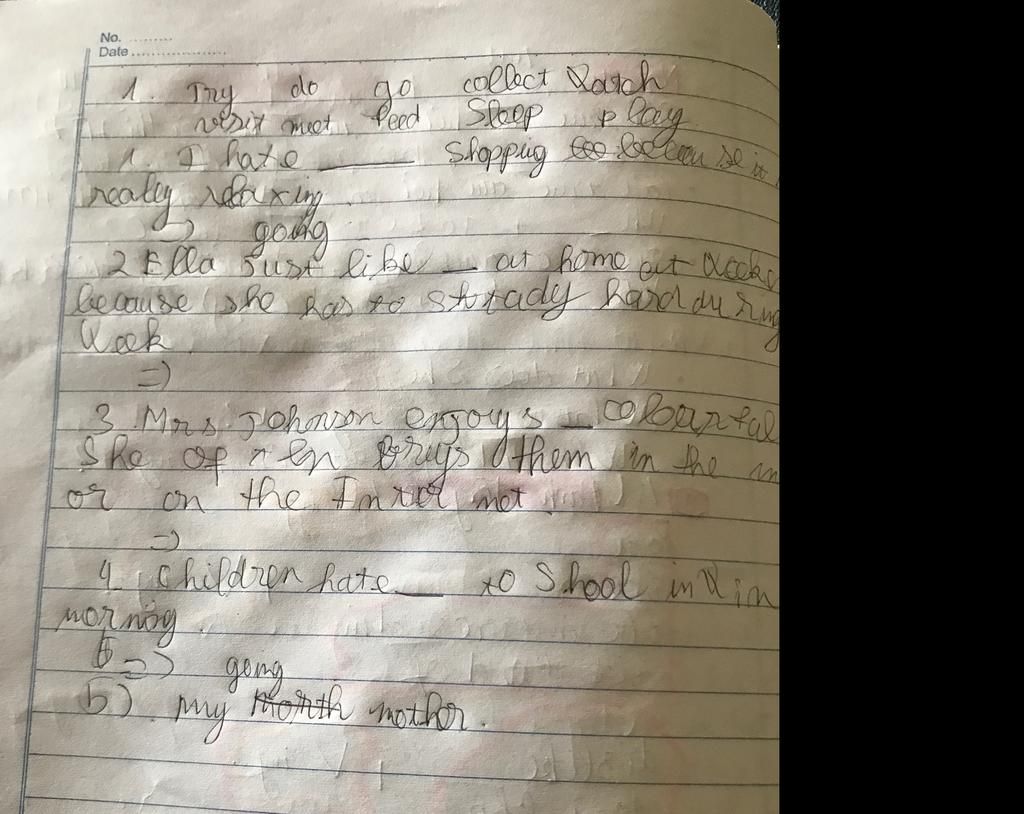 No. ........
Date ...................
1. Try do go collect Watch
visit meet feed Sleep play
1. I hate ____ Shopping because
really relaxing
=> going
2 Ella Just like __ at home at
because she has to study hard during
Week
=>
3 Mrs. Johnson enjoys __
She often them in the
or on the Internet
=>
4. Children hate __ to School in
morning.
=> going
5). my mother.